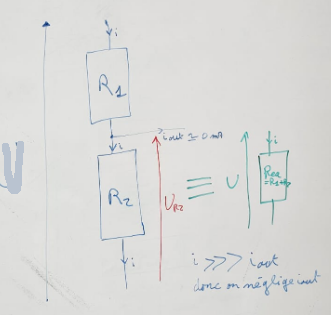 i
R1
i iout ≃ 0 mA
U
R2
UR2
≡
U
i
Req
=R1+R2
i
i >>> iout
donc on néglige iout